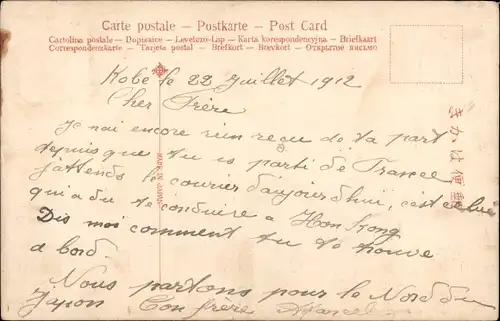 Carte postale — Postkarte — Post Card
Cartolina postale — Dopisnice — Levelezo-Lap — Karta korespondencyjna — Briefkaart
Correspondenzkarte — Tarjeta postal — Brefkort — Brevkort — Открытое письмо
Kobe le 22 Juillet 1912
Cher Frère
Je n'ai encore rien reçu de ta part
depuis que tu es parti de France
j'attends le courier d'aujourd'hui, c'est celui
qui a du te conduire a Hon Kong
Dis moi comment tu te trouve
a bord.
Nous partons pour le Nord du
Japon Ton frère Marcel
MADE IN JAPAN
きかは便郵